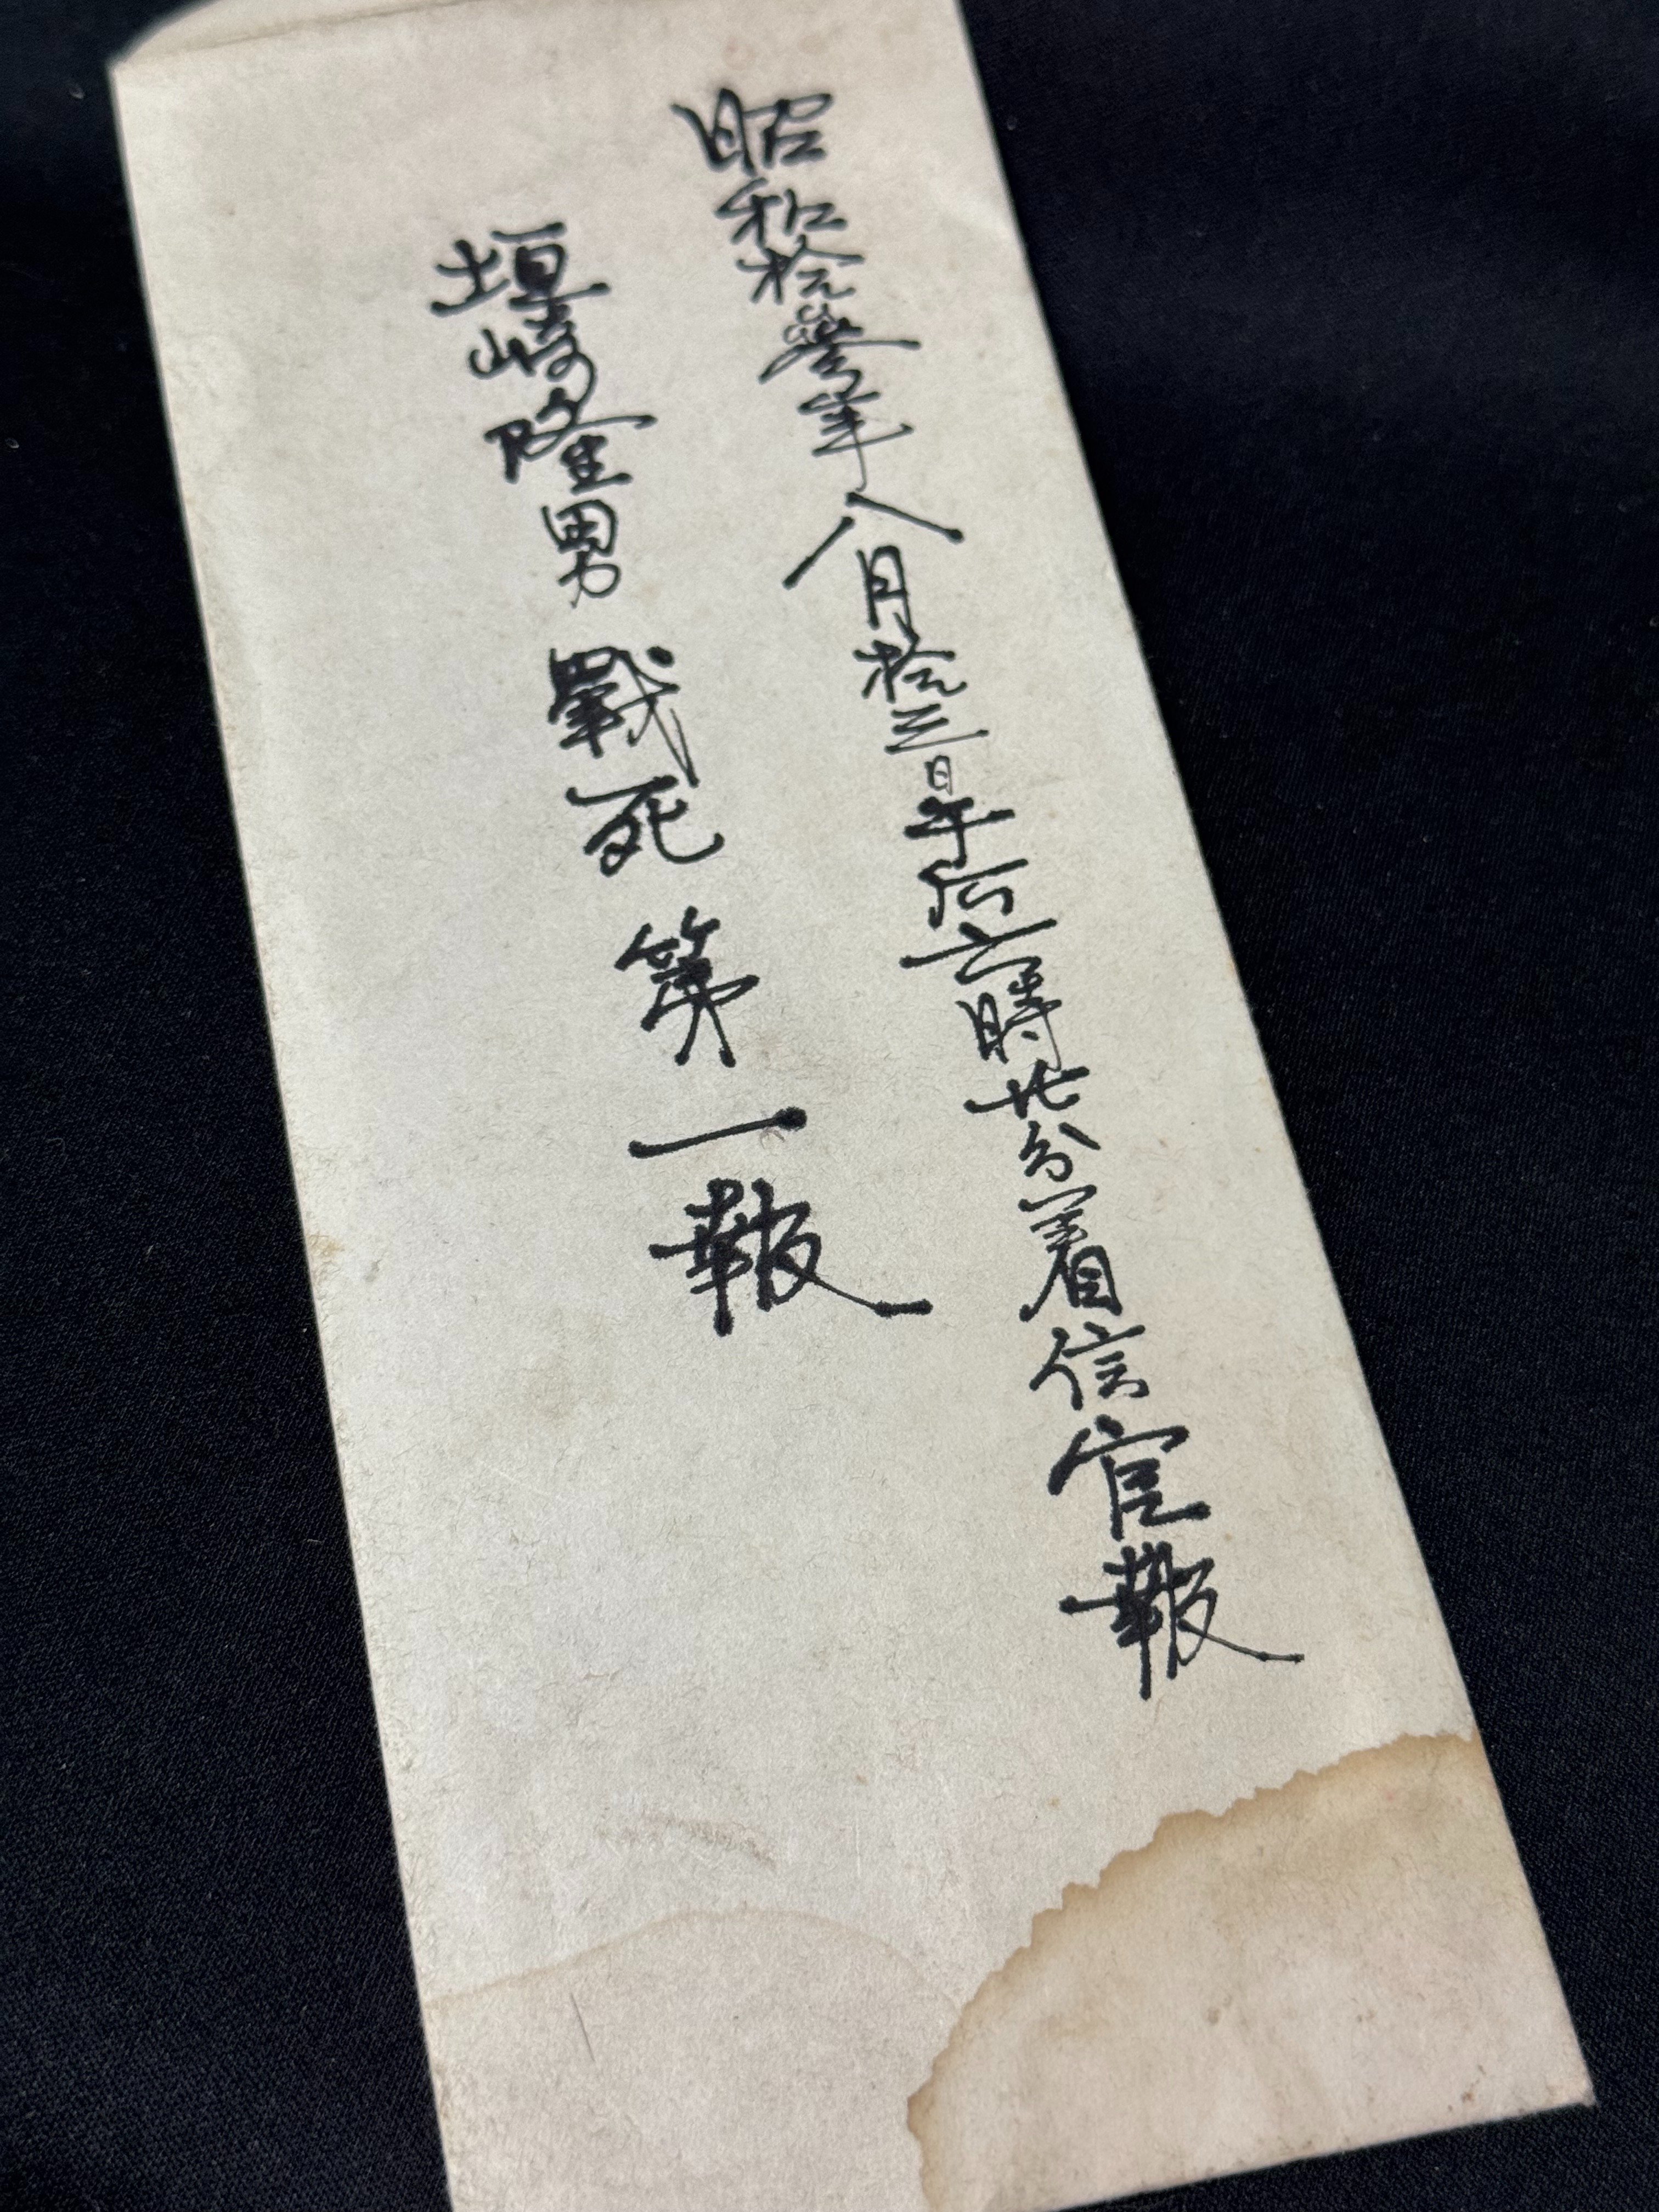 昭和拾參年八月拾三日午后六時廿分着信官報
垣崎隆男 戰死 第一報